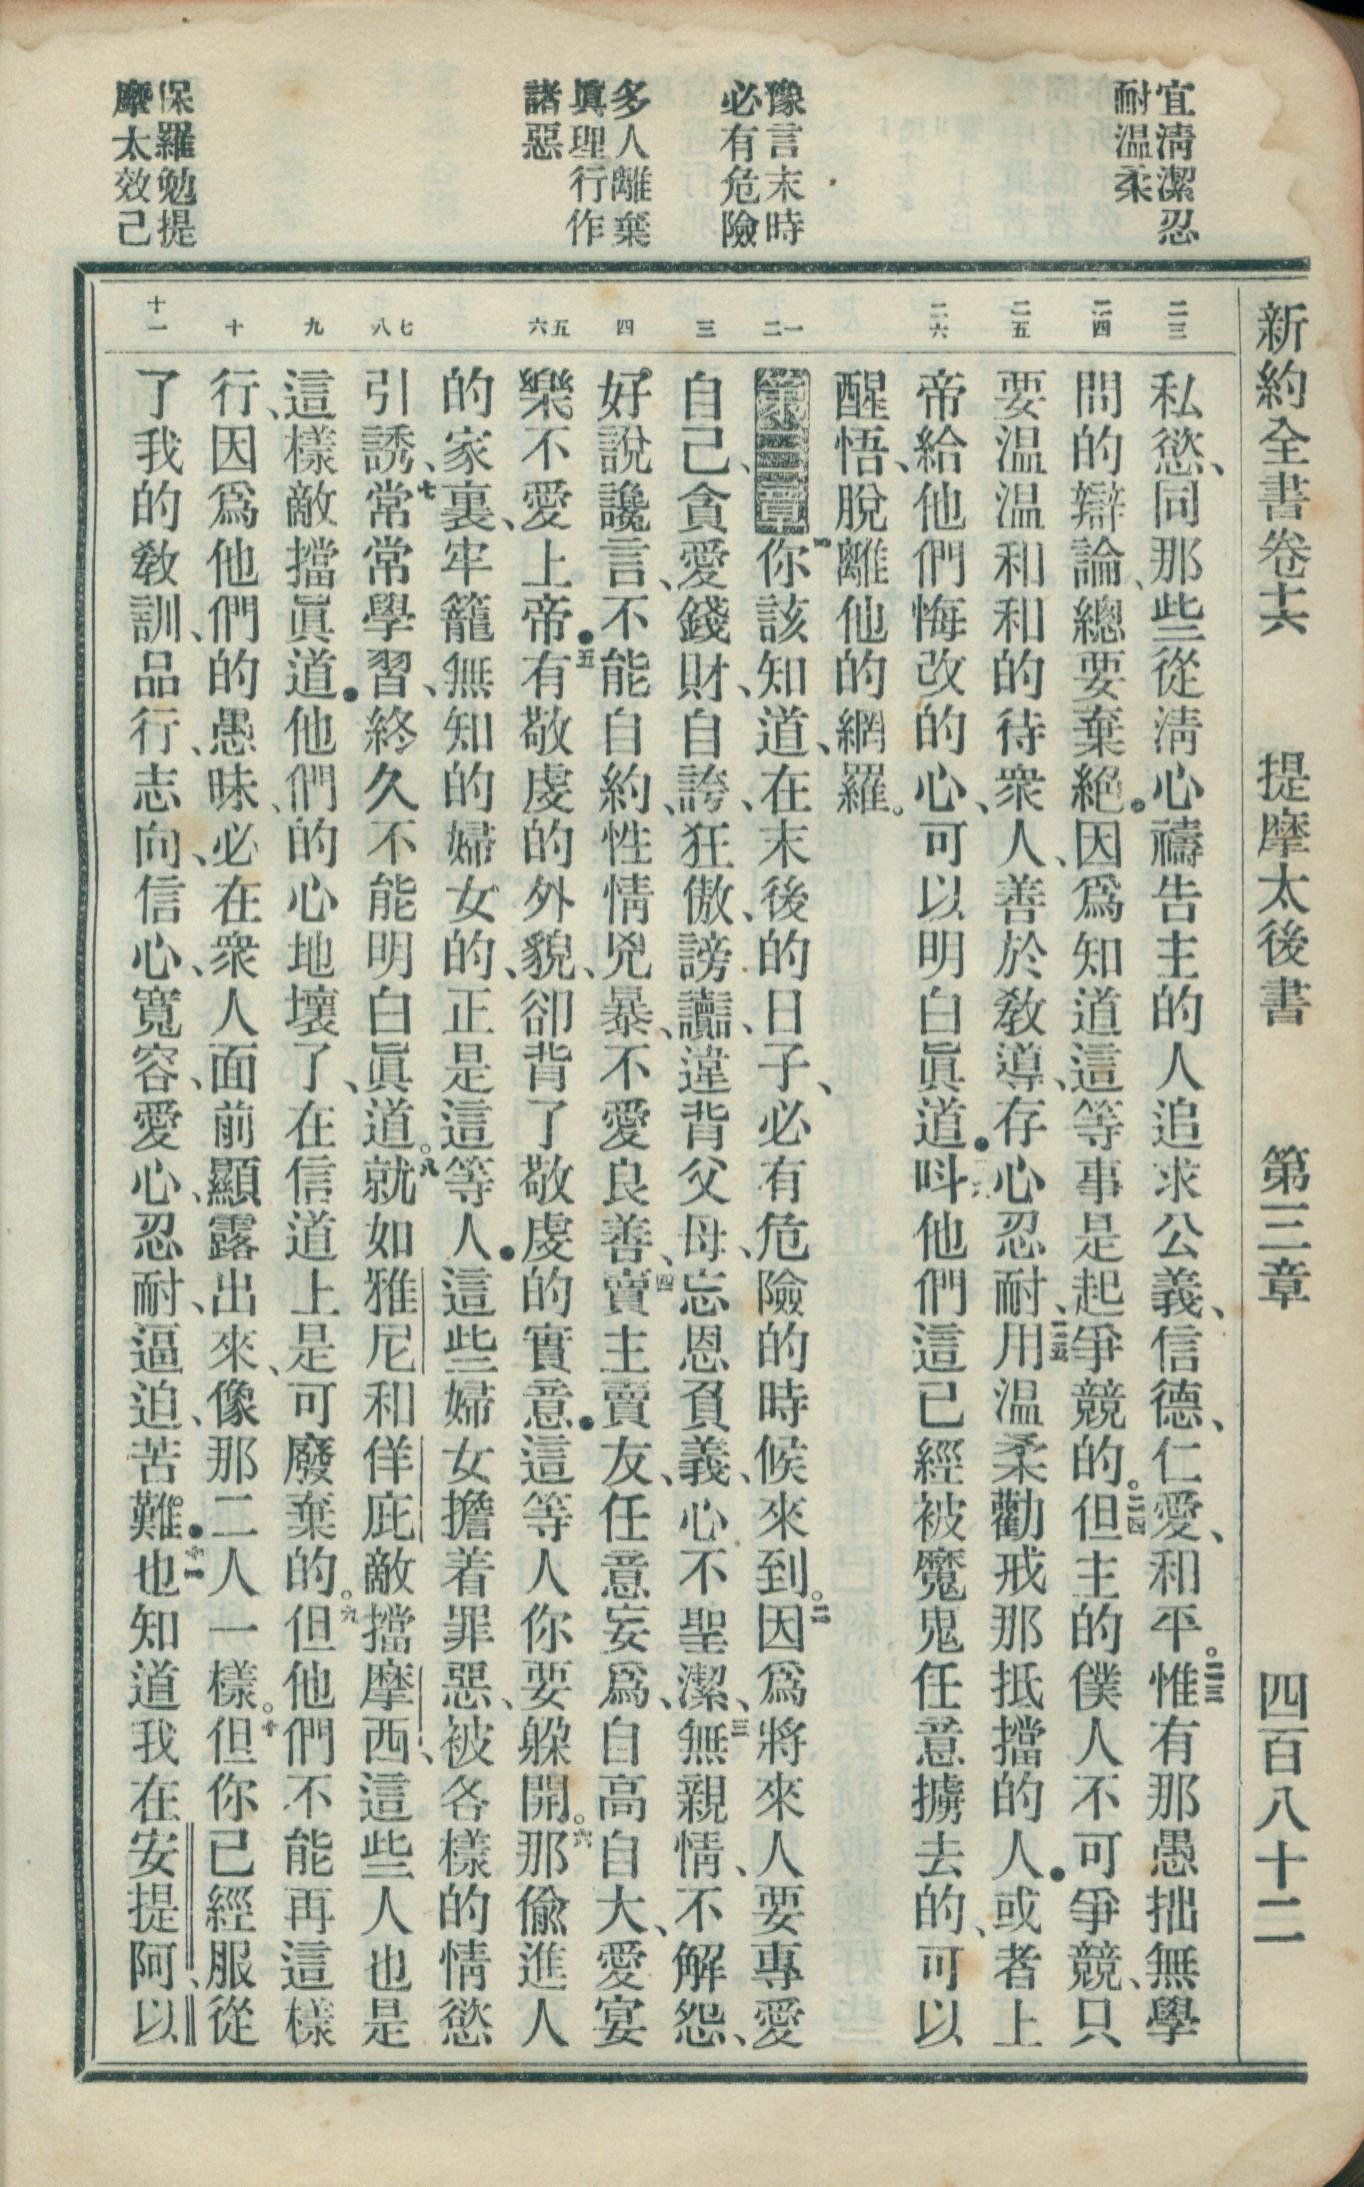 新約全書卷十六　提摩太後書　第三章　四百八十二
宜淸潔忍
耐温柔
豫言末時
必有危險
多人離棄
眞理行作
諸惡
保羅勉提
摩太效己
二三
二四
二五
二六
一
二
三
四
五
六
七
八
九
十
十一
私慾、同那些從淸心禱告主的人追求公義、信德、仁愛、和平。二三惟有那愚拙無學
問的辯論、總要棄絕。因爲知道這等事是起爭競的。二四但主的僕人不可爭競、只
要温温和和的待衆人、善於敎導、存心忍耐、二五用温柔勸戒那抵擋的人。或者上
帝給他們悔改的心、可以明白眞道。二六呌他們這已經被魔鬼任意擄去的、可以
醒悟、脫離他的網羅。
第三章一你該知道、在末後的日子、必有危險的時候來到。二因爲將來人要專愛
自己、貪愛錢財、自誇、狂傲、謗讟、違背父母、忘恩負義、心不聖潔、三無親情、不解怨、
好說讒言、不能自約、性情兇暴、不愛良善、四賣主賣友、任意妄爲、自高自大、愛宴
樂不愛上帝。五有敬虔的外貌、卻背了敬虔的實意。這等人你要躱開。六那偸進人
的家裏、牢籠無知的婦女的、正是這等人。這些婦女擔着罪惡、被各樣的情慾
引誘、七常常學習、終久不能明白眞道。八就如雅尼和佯庇敵擋摩西、這些人也是
這樣敵擋眞道。他們的心地壞了、在信道上是可廢棄的。九但他們不能再這樣
行、因爲他們的愚昧、必在衆人面前顯露出來、像那二人一樣。十但你已經服從
了我的敎訓、品行、志向、信心、寬容、愛心、忍耐、逼迫、苦難。十一也知道我在安提阿、以